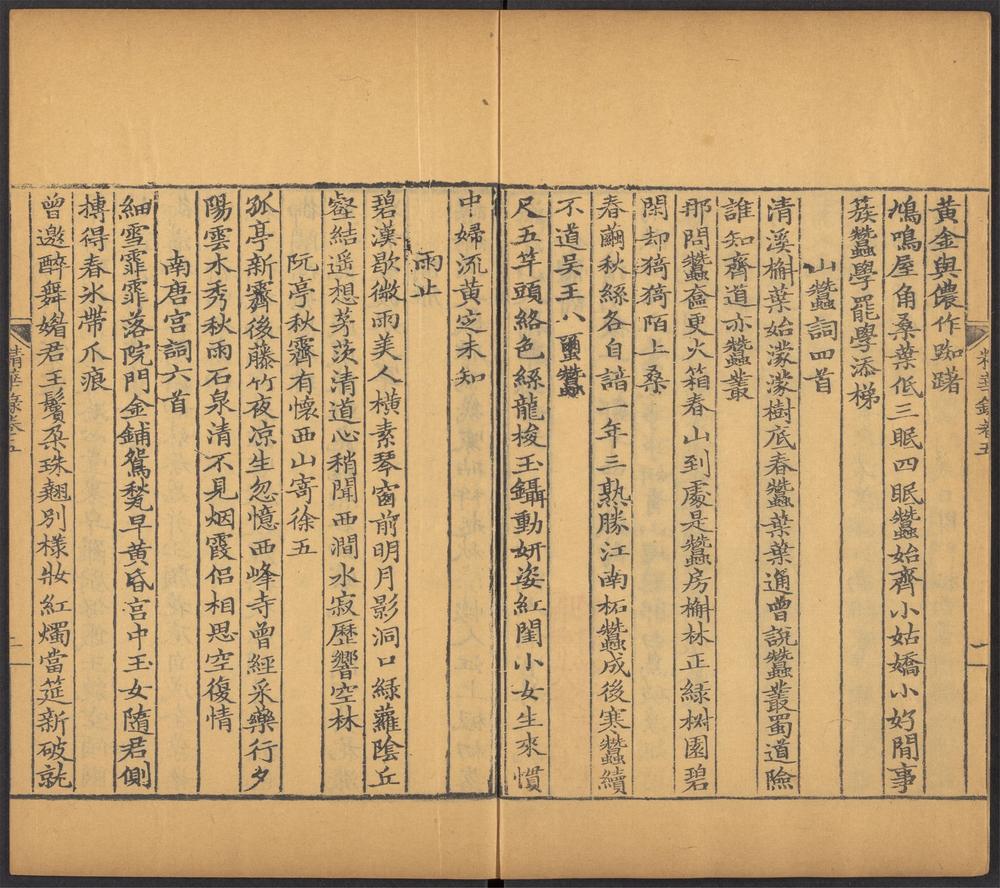 黃金與儂作踟躇
鳩鳴屋角桑葉低三眠四眠蠶始齊小姑嬌小好閒事
簇蠶學罷學添梯
山蠶詞四首
清溪槲葉始濛濛樹底春蠶葉葉通曾說蠶叢蜀道險
誰知齊道亦蠶叢
那問蠶奩更火箱春山到處是蠶房槲林正綠椒園碧
閑却猗猗陌上桑
春繭秋絲各自諳一年三熟勝江南柘蠶成後寒蠶續
不道吳王八繭蠶
尺五竿頭絡色絲龍梭玉鑷動妍姿紅閨小女生來慣
中婦流黃定未知
雨止
碧漢歇微雨美人橫素琴窗前明月影洞口綠蘿陰丘
壑結遥想茅茨清道心稍聞西澗水寂歷響空林
阮亭秋霽有懷西山寄徐五
孤亭新霽後藤竹夜凉生忽憶西峰寺曾經采藥行夕
陽雲木秀秋雨石泉清不見烟霞侶相思空復情
南唐宮詞六首
細雪霏霏落院門金鋪鴛甃早黃昏宮中玉女隨君側
摶得春氷帶爪痕
曾邀醉舞媚君王鬢朶珠翹別樣妝紅燭當筵新破就
精華錄卷五